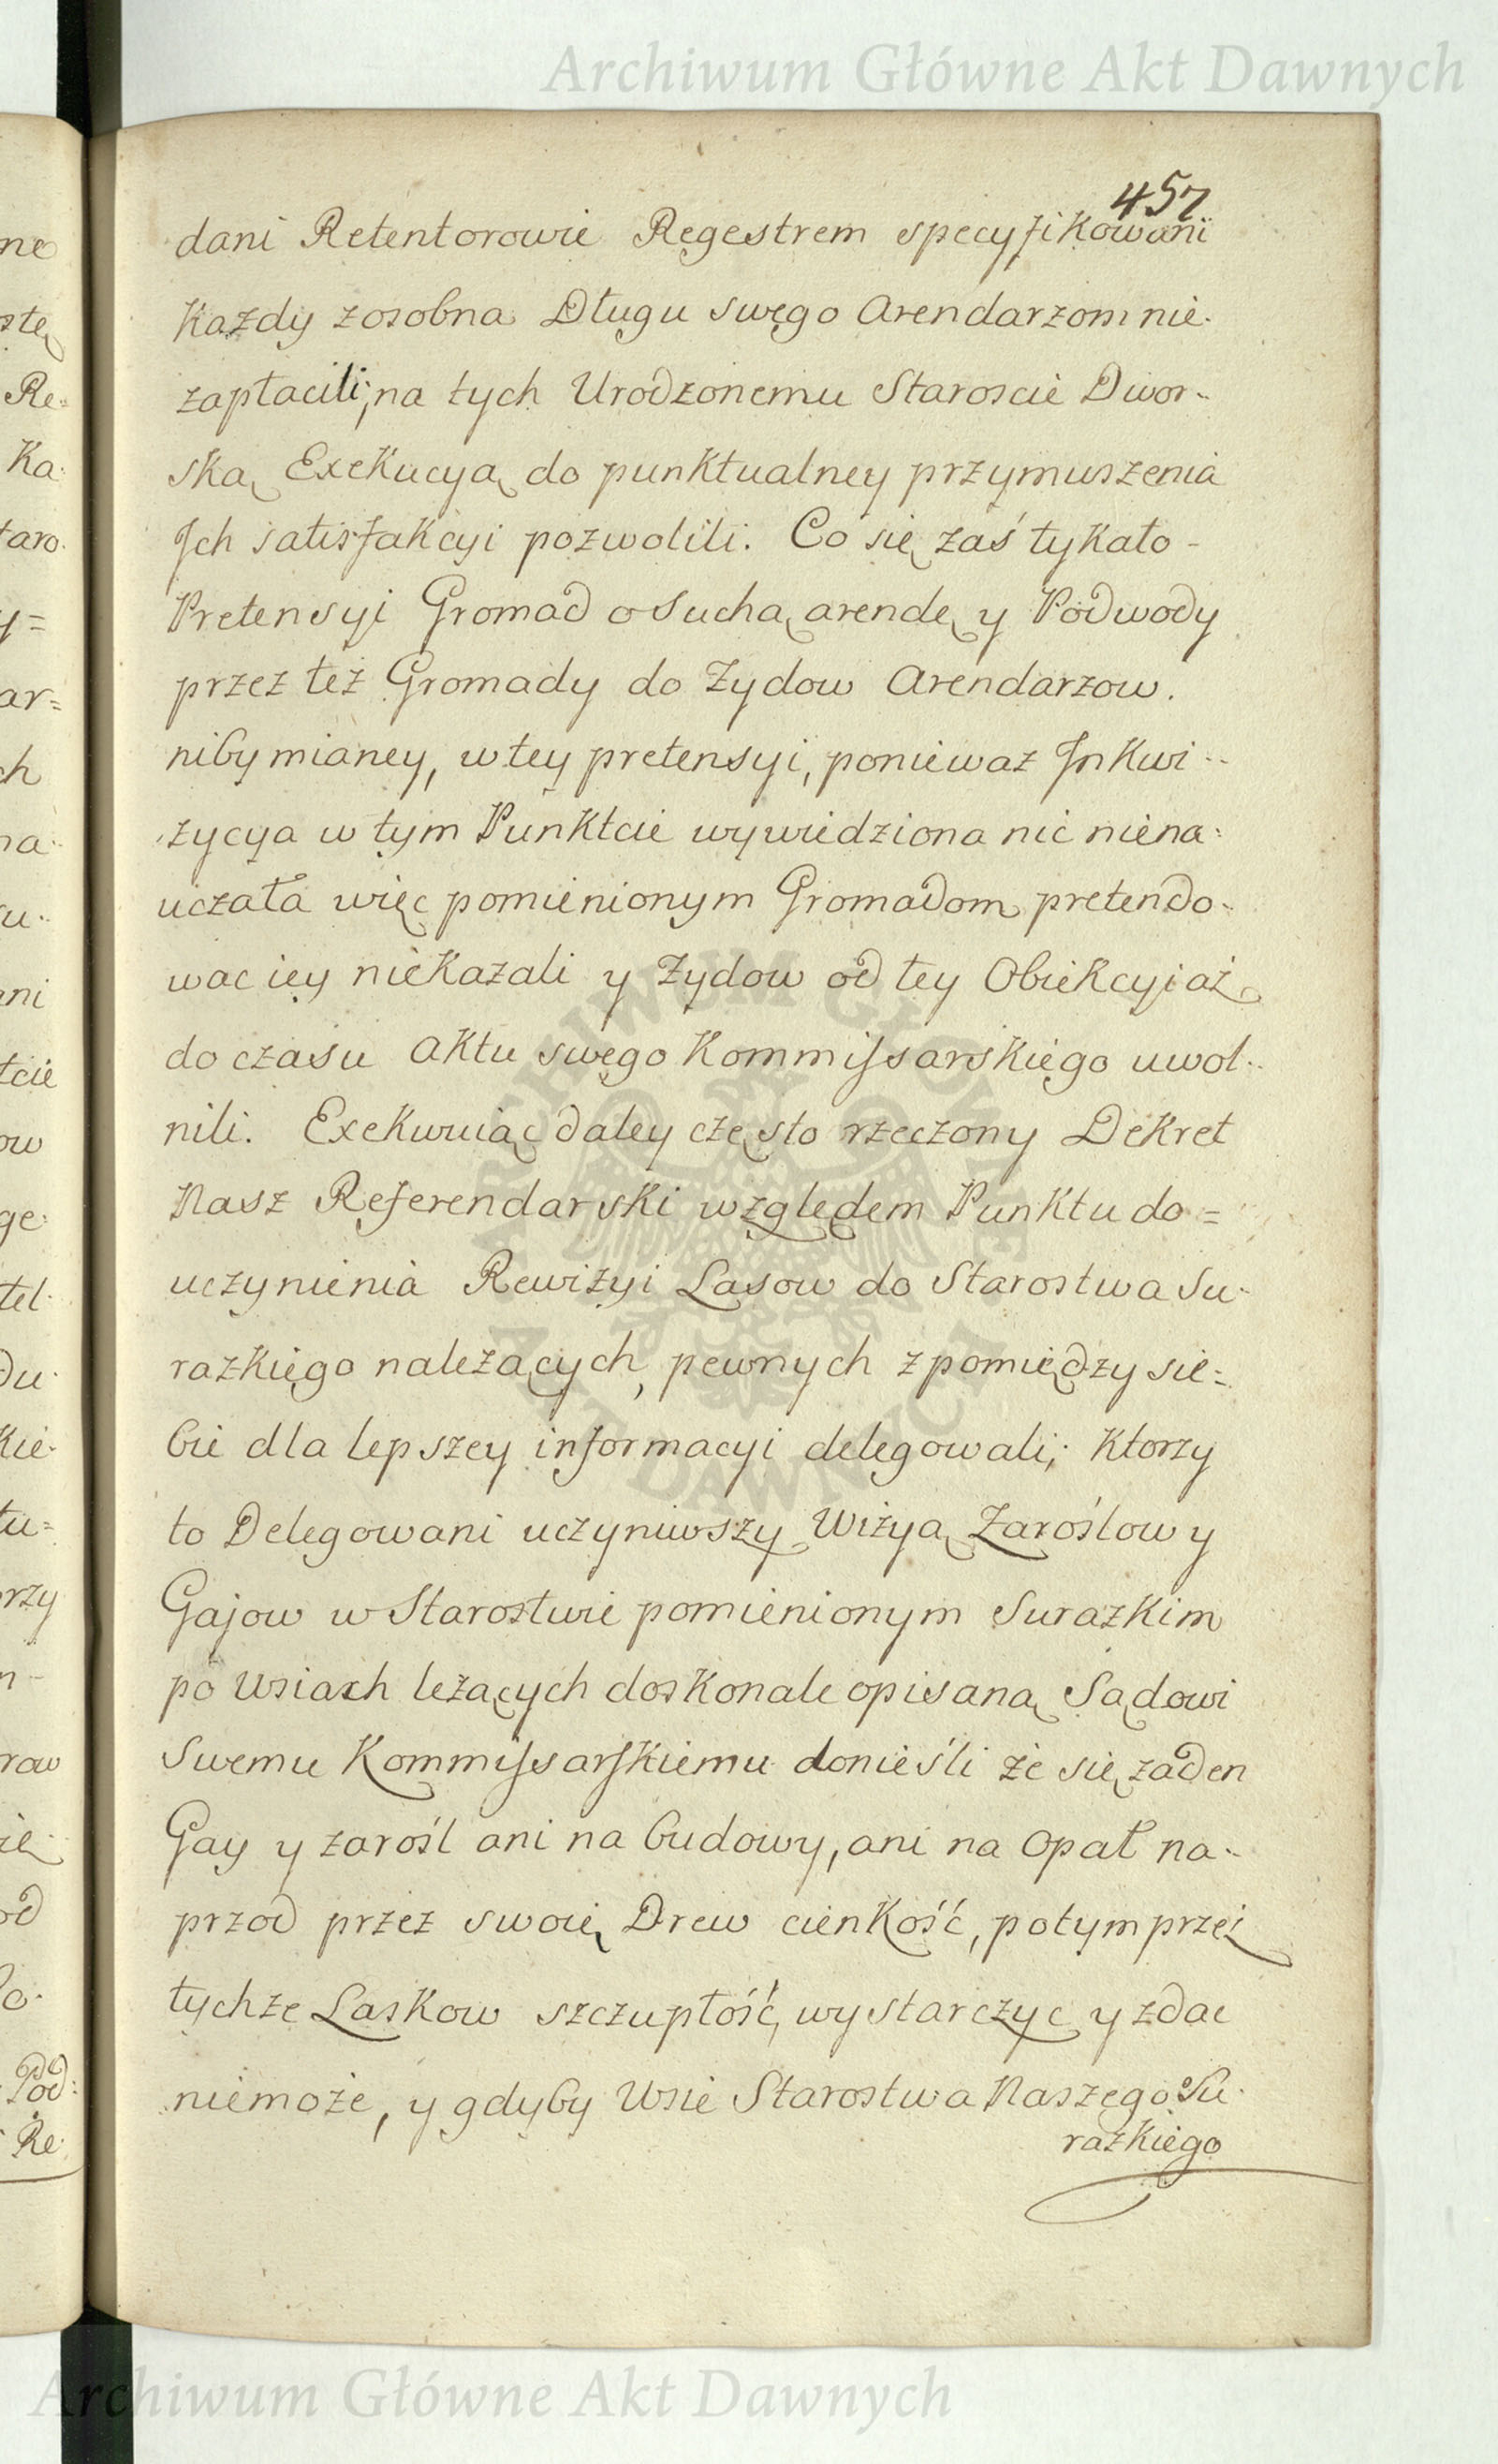 Archiwum Główne Akt Dawnych
457
dani Retentorowie Regestrem specyfikowani
Każdy zosobna Długu swego Arendarzom nie-
zapłacili; na tych Urodzonemu Staroscie Dwor-
ską Exekucyą do punktualney przymuszenia
Ich satisfakcyi pozwolili. Co się zaś tykało
Pretensyi Gromad o suchą arendę y Podwody
przez też Gromady do Żydow Arendarzow.
niby mianey, w tey pretensyi, poniewaz Inkwi-
zycya w tym Punktcie wywiedziona nic niena-
uczała więc pomienionym Gromadom pretendo-
wac iey niekazali y Żydow od tey Obiekcyi aż
do czasu Aktu swego Kommissarskiego uwol-
nili. Exekwuiąc daley często rzeczony Dekret
Nasz Referendarski względem Punktu do=
uczynienia Rewizyi Lasow do Starostwa Su-
razkiego należących, pewnych z pomiędzy sie=
bie dla lepszey informacyi delegowali; Ktorzy
to Delegowani uczyniwszy Wizyą Zaroślow y
Gajow w Starostwie pomienionym Surazkim
po Wsiach leżących doskonale opisaną Sądowi
Swemu Kommissarskiemu donieśli że się żaden
Gay y zarośl ani na budowy, ani na Opał na-
przod przez swoię Drew cienkość, potym przez
tychże Laskow szczupłość, wystarczyc y zdac
niemoże, y gdyby Wsie Starostwa Naszego Su-
razkiego
Archiwum Główne Akt Dawnych